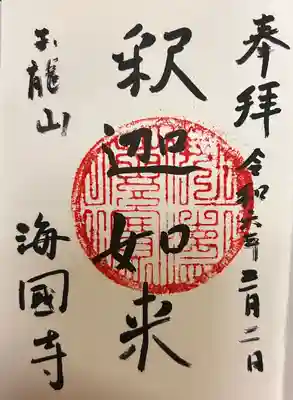 奉拝
令和六年二月二日
釈迦如来
玉龍山
海國寺